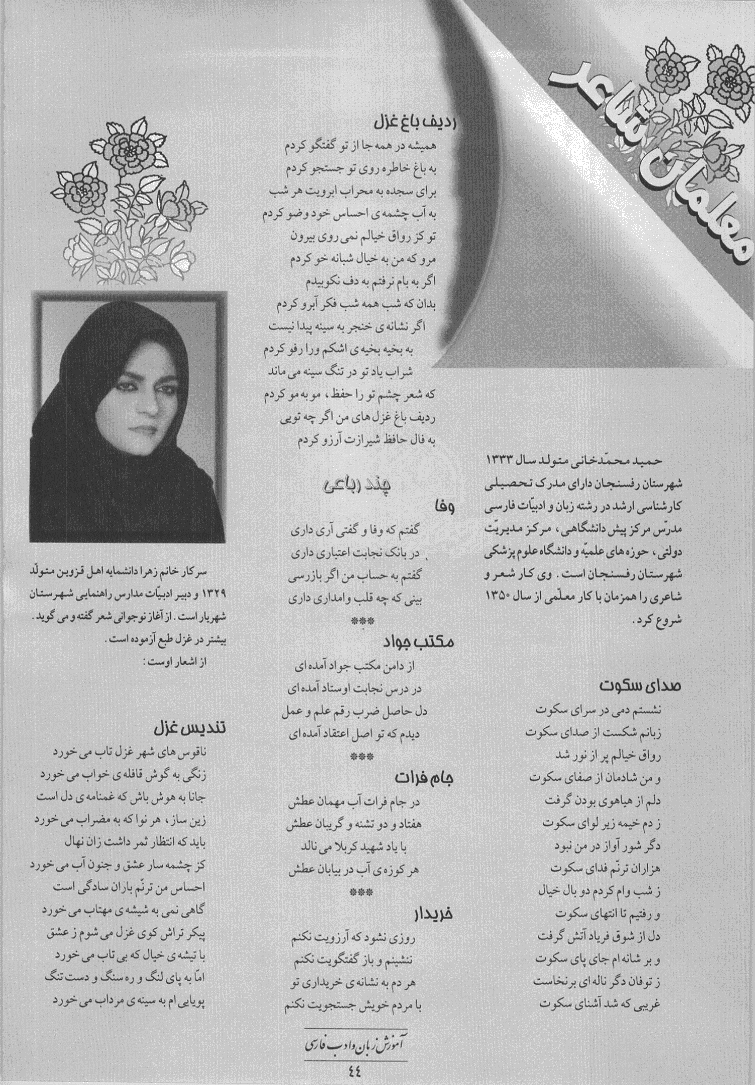 معلمان شاعر
حمید محمّدخانی متولد سال ۱۳۳۳
شهرستان رفسنجان دارای مدرک تحصیلی
کارشناسی ارشد در رشته زبان و ادبیّات فارسی
مدرّس مرکز پیش دانشگاهی، مرکز مدیریّت
دولتی، حوزه های علمیّه و دانشگاه علوم پزشکی
شهرستان رفسنجان است . وی کار شعر و
شاعری را همزمان با کار معلّمی از سال ۱۳۵۰
شروع کرد .
صدای سکوت
نشستم دمی در سرای سکوت
زبانم شکست از صدای سکوت
رواق خیالم پر از نور شد
و من شادمان از صفای سکوت
دلم از هیاهوی بودن گرفت
ز دم خیمه زیر لوای سکوت
دگر شور آواز در من نبود
هزاران ترنّم فدای سکوت
ز شب وام کردم دو بال خیال
و رفتیم تا انتهای سکوت
دل از شوق فریاد آتش گرفت
و بر شانه ام جای پای سکوت
ز توفان دگر ناله ای برنخاست
غریبی که شد آشنای سکوت
ردیف باغ غزل
همیشه در همه جا از تو گفتگو کردم
به باغ خاطره روی تو جستجو کردم
برای سجده به محراب ابرویت هر شب
به آب چشمه ی احساس خود وضو کردم
تو کز رواق خیالم نمی روی بیرون
مرو که من به خیال شبانه خو کردم
اگر به بام نرفتم به دف نکوبیدم
بدان که شب همه شب فکر آبرو کردم
اگر نشانه ی خنجر به سینه پیدا نیست
به بخیه بخیه ی اشکم ورا رفو کردم
شراب یاد تو در تنگ سینه می ماند
که شعر چشم تو را حفظ، مو به مو کردم
ردیف باغ غزل های من اگر چه تویی
به فال حافظ شیرازت آرزو کردم
چند رباعی
وفا
گفتم که وفا و گفتی آری داری
در بانک نجابت اعتباری داری
گفتم به حساب من اگر بازرسی
بینی که چه قلب وامداری داری
***
مکتب جواد
از دامن مکتب جواد آمده ای
در درس نجابت اوستاد آمده ای
دل حاصل ضرب رقم علم و عمل
دیدم که تو اصل اعتقاد آمده ای
***
جام فرات
در جام فرات آب مهمان عطش
هفتاد و دو تشنه و گریبان عطش
با یاد شهید کربلا می نالد
هر کوزه ی آب در بیابان عطش
***
خریدار
روزی نشود که آرزویت نکنم
ننشینم و باز گفتگویت نکنم
هر دم به نشانه ی خریداری تو
با مردم خویش جستجویت نکنم
سرکار خانم زهرا دانشمایه اهل قزوین متولّد
۱۳۲۹ و دبیر ادبیّات مدارس راهنمایی شهرستان
شهریار است . از آغاز نوجوانی شعر گفته و می گوید .
بیشتر در غزل طبع آزموده است .
از اشعار اوست :
تندیس غزل
ناقوس های شهر غزل تاب می خورد
زنگی به گوش قافله ی خواب می خورد
جانا به هوش باش که غمنامه ی دل است
زین ساز، هر نوا که به مضراب می خورد
باید که انتظار ثمر داشت زان نهال
کز چشمه سار عشق و جنون آب می خورد
احساس من ترنّم باران سادگی است
گاهی نمی به شیشه ی مهتاب می خورد
پیکر تراش کوی غزل می شوم ز عشق
با تیشه ی خیال که بی تاب می خورد
امّا به پای لنگ و ره سنگ و دست تنگ
پویایی ام به سینه ی مرداب می خورد
آموزش زبان و ادب فارسی
۴۴